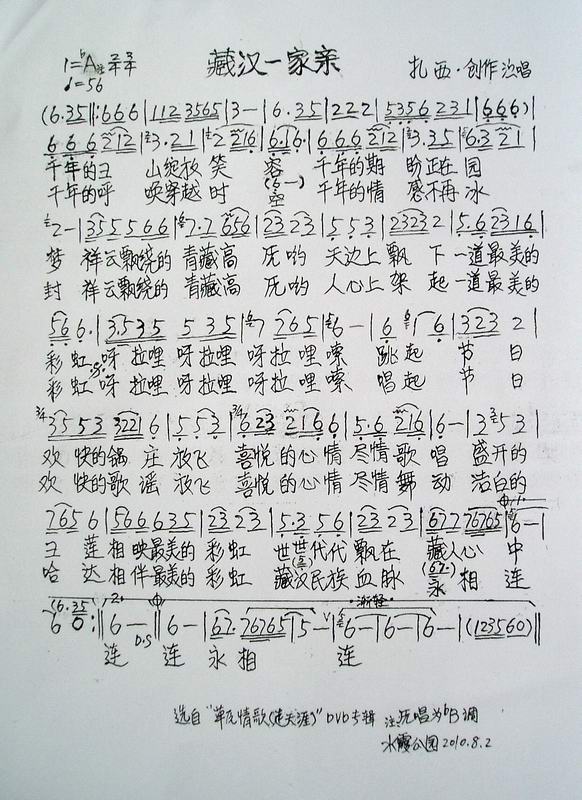 藏汉一家亲
1=♭A 2/4 3/4 扎西·创作演唱
♩=56
(6.35|:666|112 3565|3—|6.35|222|5356 231|666)|
666 212|3.21|2 216|6.16|666 212|3.35|6.3 21|
千年的 山绽放 笑 容 千年的期 盼正在 园
千年的呼 唤穿越 时 空 千年的情 感不再 冰
(6—)
2—|355566|7.7 656|23 23|553|2323 2|5.6 2316|
梦 祥云飘绕的 青藏高 原哟 天边上飘 下 一道最美的
封 祥云飘绕的 青藏高 原哟 人心上架 起 一道最美的
56 6.|3.535 535|7 765|6—|6 1 6|323 2|
彩虹 呀拉哩 呀拉哩 呀拉哩嗦 跳起 节 日
彩虹 呀拉哩 呀拉哩 呀拉哩嗦 唱起 节 日
3553 3221 6|553|6 23 216 6|5.6 216|6—|3 353|
欢 快的锅 庄 放飞 喜悦的心情 尽情歌 唱 盛开的
欢 快的歌 谣 放飞 喜悦的心情 尽情舞 动 洁白的
765 6|566 635|23 23|5.3 56|23 23|677 76765|6—|
莲 相映最美的 彩虹 世世代代 飘在 藏人心 中
哈 达 相伴最美的 彩虹 藏汉民族 血脉 永 相 连
(67.)
(6.35
6 0:|6—|6—|67. 76765|5—|6—|6—|6—|(123560)||
2. D.S 渐轻
连 连 永 相 连
选自“草原情歌(走天涯)”DVD专辑 注:原唱为♭B调
水霞公园2010.8.2